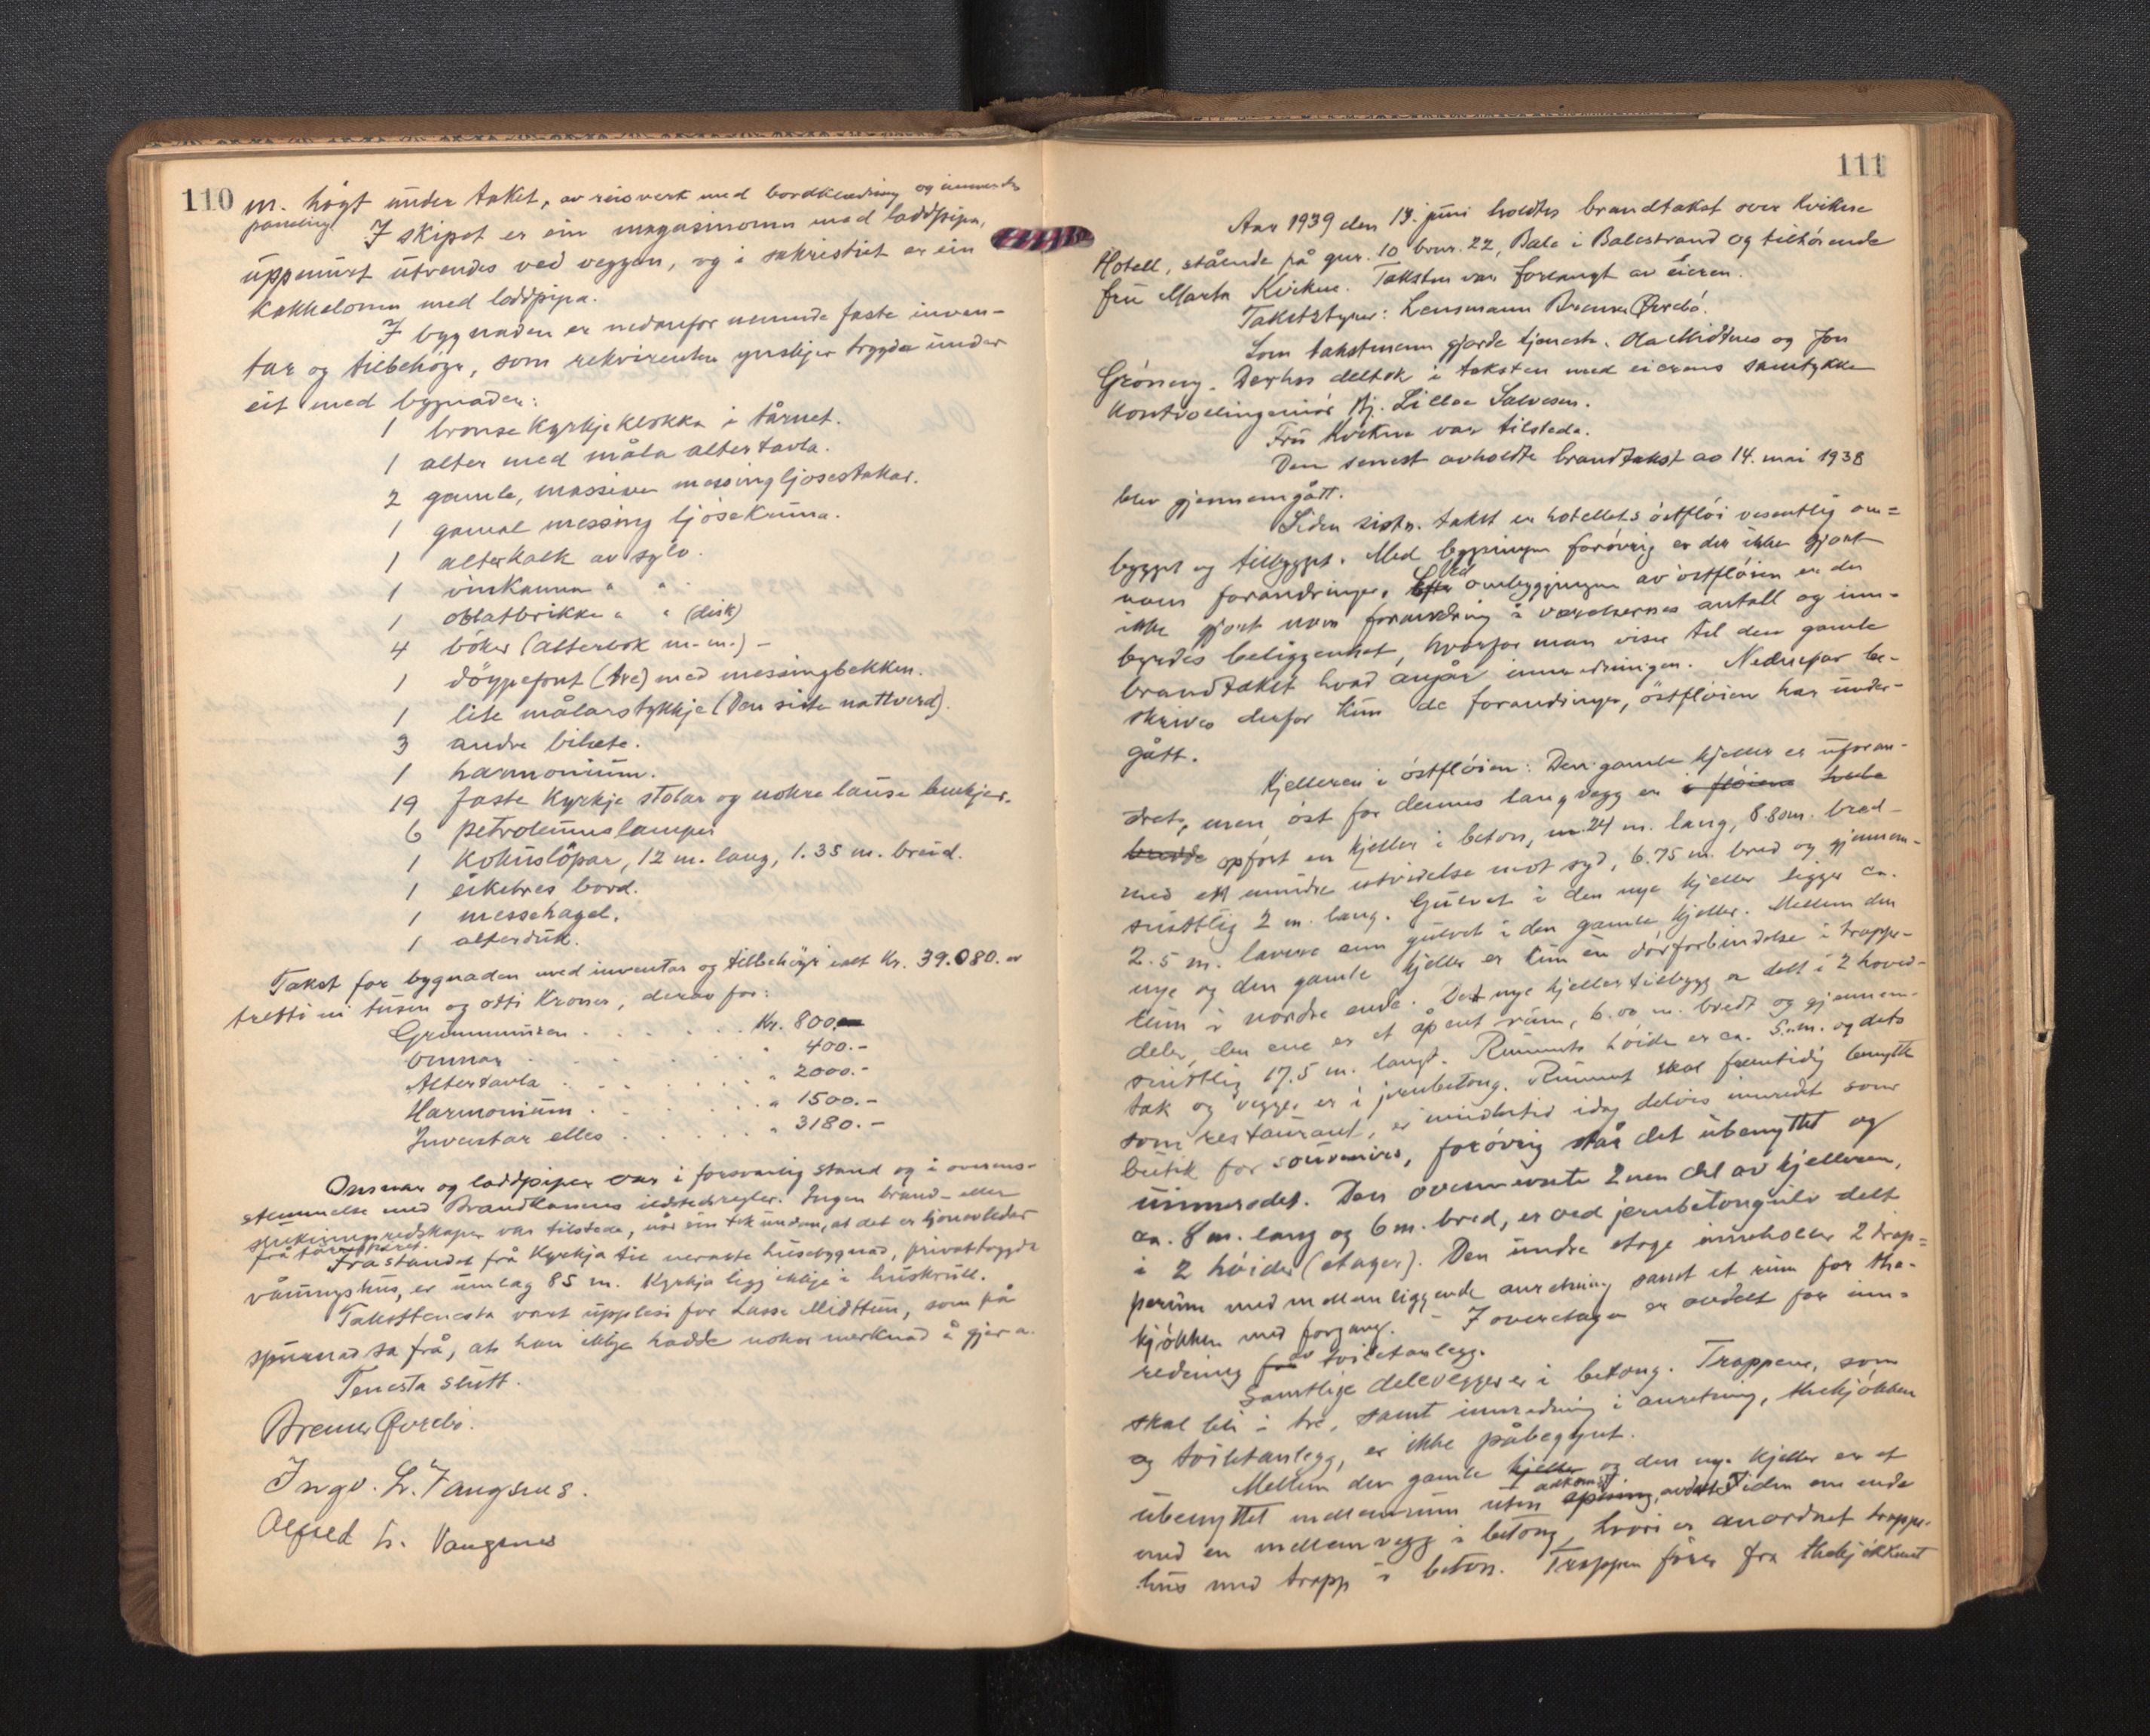 110
m. högt under taket, av reisverk med bordklædning og innvendes
paneling. I skipet er ein magasinomn med loddpipa,
uppmurt utvendes ved veggen, og i sakristiet er ein
kakkelomn med loddpipa.
I bygnaden er nedanfor nemnde faste inven-
tar og tilbehöyr, som rekvirenten ynskjer trygda under
eit med bygnaden:
1 bronse kyrkjeklokka i tårnet.
1 alter med måla altertavla.
2 gamle, massive messingljosestakar.
1 gamal messing ljosekruna.
1 alterkalk av sylv.
1 vinkanna " "
1 oblatbrikke " " (disk)
4 böker (alterbok m.m.) -
1 döypefont (tre) med messingbekken.
1 lite målarstykkje (Den siste nattverd).
3 andre bilete.
1 harmonium.
19 faste kyrkjestolar og nokre lause benkjer.
6 petroleumslamper
1 kokuslöpar, 12 m. lang, 1.35 m. breid.
1 eiketres bord.
1 messehagel.
1 alterduk.
Takst for bygnaden med inventar og tilbehöyr ialt kr. 39.080. er
tretti ni tusen og otti kroner, derav for:
Grunnmuren . . . . . . Kr. 800.-
Omnar . . . . . . " 400.-
Altertavla . . . . . . " 2000.-
Harmonium . . . . . . " 1500.-
Inventar elles . . . . . " 3180.-
Omnar og loddpiper var i forsvarlig stand og i overens-
stemmelse med Brandkassens ildstedsregler. Ingen brand- eller
slukningsredskaper var tilstede, når ein tek undan, at det er ljonavleder
frå tårnet
Frastandet frå kyrkja til neraste husebygnad, privattrygda
våningshus, er umlag 85 m. Kyrkja ligg ikkje i huskrull.
Takstteneste vart upplesi for Lasse Midttun, som på
spurnad sa frå, at han ikkje hadde nokor merknad å gjera.
Tenesta slutt.
Bremer Øvrebö.
Ingv. L. Vangsnes.
Alfred L. Vangsnes
111
Aar 1939 den 13. juni holdtes brandtakst over Kviknes
Hotell, stående på gnr. 10 bnr. 22, Bale i Balestrand og tilhörende
fru Marta Kvikne. Taksten var forlangt av eieren.
Takststyrer: Lensmann Bremer Øvrebö.
Som takstmenn gjorde tjeneste: Ola Midtnes og Jon
Gröneng. Derhos deltok i taksten med eierens samtykke
kontrollingeniör Hj. Lilloe Salvesen.
Fru Kvikne var tilstede.
Den senest avholdte brandtakst av 14. mai 1938
blev gjennemgått.
Siden siste takst er hotellets östflöi vesentlig om-
bygget og tilbygget. Med bygningen forövrig er der ikke gjort
noen forandringer. Ved ombyggingen av östflöien er der
ikke gjort noen forandring i værelsernes antall og inn-
byrdes beliggenhet, hvorfor man viser til den gamle
brandtakst hvad angår innredningen. Nedenfor be-
skrives derfor kun de forandringer, östflöien har under-
gått.
Kjelleren i östflöien: Den gamle kjeller er uforan-
dret, men öst for dennes langvegg er i flöiens hele
bredde opfört en kjeller i beton, 24 m. lang, 8.80 m. bred
med en mindre utvidelse mot syd, 6.75 m. bred og gjennem-
snittlig 2 m. lang. Gulvet i den nye kjeller ligger ca.
2.5 m. lavere enn gulvet i den gamle kjeller. Mellem den
nye og den gamle kjeller er kun en dörforbindelse i trappe-
rum i nordre ende. Det nye kjellertilbygg er delt i 2 hoved-
deler, den ene er et åpent rum, 6.00 m. bredt og gjennem-
snittlig 17.5 m. langt. Rummets höide er ca. 5 m. og dets
tak og vegger er i jernbetong. Rummet skal fremtidig benyttes
som restaurant, er imidlertid idag delvis innredet som
butik for souvenirs, forövrig står det ubenyttet og
uinnredet. Den ovennevnte 2nen del av kjelleren,
ca. 8 m. lang og 6 m. bred, er ved jernbetonggulv delt
i 2 höider (etager). Den undre etage inneholder 2 trap-
perum med mellemliggende anretning samt et rum for the-
kjökken med forgang. - I overetagen er avdelt for inn-
redning av toiletanlegg.
Samtlige delevegger er i betong. Trappene, som
skal bli i tre, samt innredning i anretning, thekjökken
og toiletanlegg, er ikke påbegynt.
Mellem den gamle kjeller og den nye kjeller er et
ubenyttet mellemrum uten adkomst, avdelt i den ene ende
med en mellemvegg i betong, hvori er anordnet trappe-
hus med trapp i beton. Trappen förer fra thekjökkenet